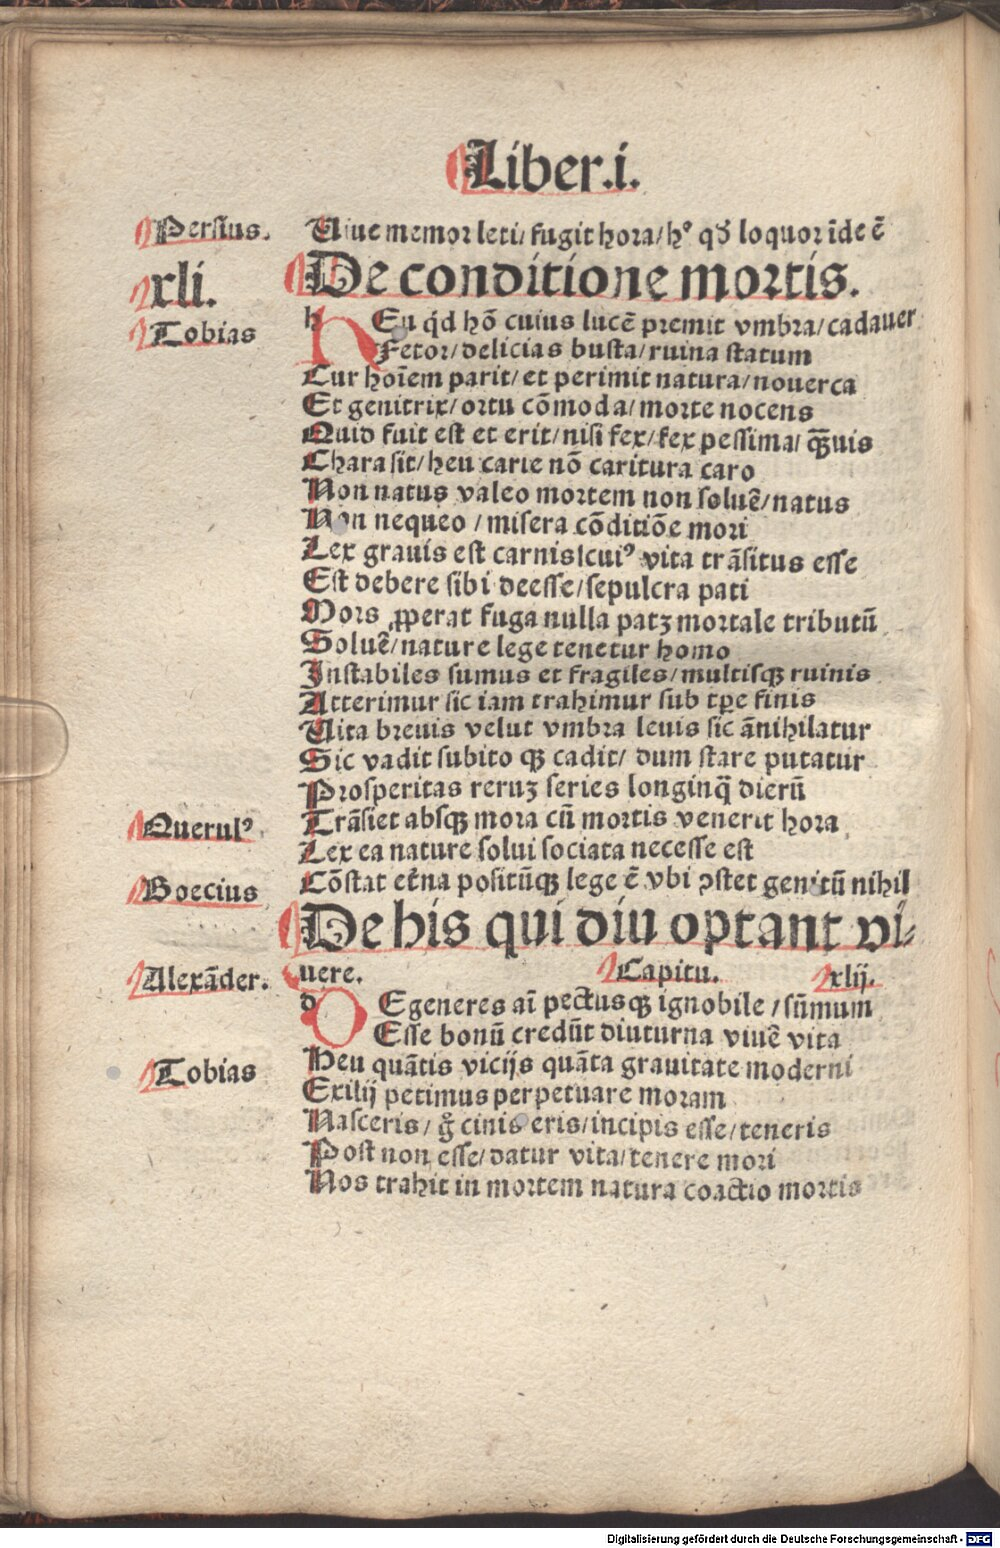 Liber.i.
Persius. Uiue memor leti/ fugit hora/ hꝰ qđ loquor īde ē
De conditione mortis.
xli.
Tobias
hEu qd hō cuius lucē premit vmbra/ cadauer
Fetor/ delicias busta/ ruina statum
Cur hoīem parit/ et perimit natura/ nouerca
Et genitrix/ ortu cōmoda/ morte nocens
Quid fuit est et erit/ nisi fex/ fex pessima/ qꝫuis
Chara sit/ heu carie nō caritura caro
Non natus valeo mortem non soluē/ natus
Non nequeo / misera cōditiōe mori
Lex grauis est carnis/ cuiꝰ vita trāsitus esse
Est debere sibi deesse/ sepulcra pati
Mors ꝓperat fuga nulla patꝫ mortale tributū
Soluē/ nature lege tenetur homo
Instabiles sumus et fragiles/ multisqꝫ ruinis
Atterimur sic iam trahimur sub tꝑe finis
Uita breuis velut vmbra leuis sic ānihilatur
Sic vadit subito qꝫ cadit/ dum stare putatur
Prosperitas reruꝫ series longinq̄ dierū
Querulꝰ Trāsiet absqꝫ mora cū mortis venerit hora
Lex ea nature solui sociata necesse est
Boecius Cōstat etn̄a positūqꝫ lege ē vbi ꝯstet genitū nihil
De his qui diu optant vi⸗
uere. Capitu. xlij.
Alexāder.
dEgeneres aī pectusqꝫ ignobile / sūmum
Esse bonū credūt diuturna viuē vita
Tobias Heu quātis vicijs quāta grauitate moderni
Exilij petimus perpetuare moram
Nasceris/ g̊ cinis eris/ incipis esse/ teneris
Post non esse/ datur vita/ tenere mori
Nos trahit in mortem natura coactio mortis
Digitalisierung gefördert durch die Deutsche Forschungsgemeinschaft - DFG